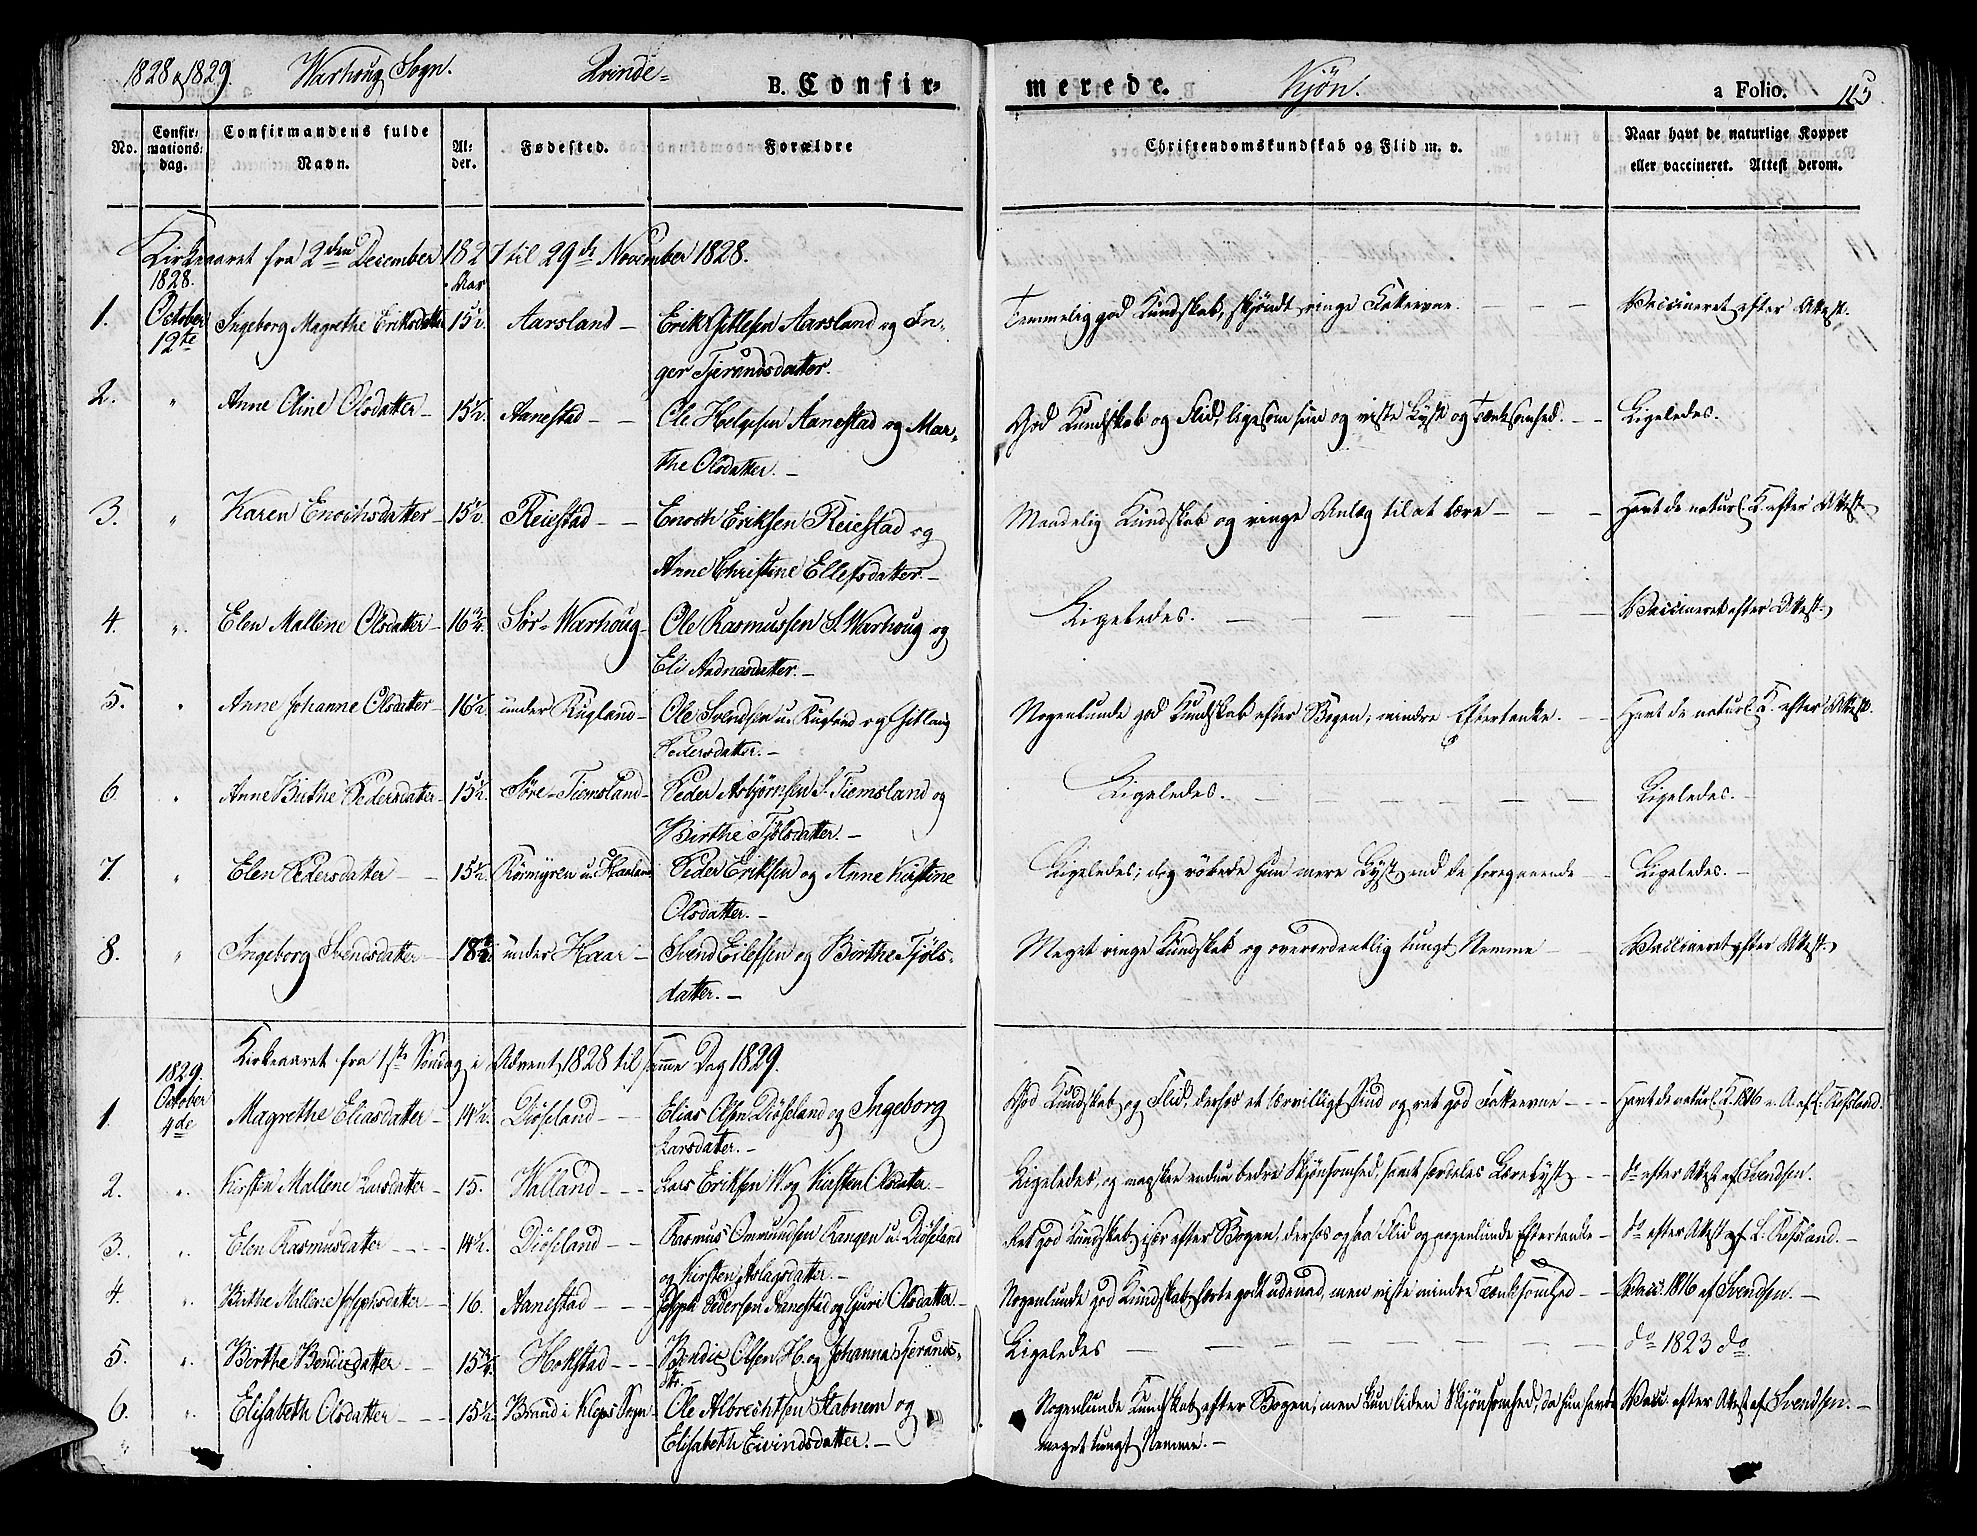 1828 & 1829. Warhoug Sogn. Qvinde= B. Confir= merede. Kjøn. a Folio. 115.
No. Confir= mations= dag. Confirmandens fulde Navn. Al= der. Fødested. Forældre Christendomskundskab og Flid m. v. Naar havt de naturlige Kopper eller vaccineret. Attest derom.
Kirkeaaret fra 2den December 1827 til 29de November 1828.
1828. Aar
1. October 12te Ingeborg Magrethe Eriksdatter 15½. Aarsland – Erik Gitlesen Aarsland og In= Temmelig god Kundskab, skjøndt ringe Fatteevne. – – – Vaccineret efter Attest.
ger Tjerandsdatter.
2. " Anne Oline Olsdatter – 15½. Aanestad – – Ole Helgesen Aanestad og Mar= God Kundskab og Flid, ligesom hun og viste Lyst og Tænksomhed. – – Ligeledes.
the Olsdatter. –
3. " Karen Enochsdatter – 15½. Reiestad – – Enoch Eriksen Reiestad og Maadelig Kundskab og ringe Anlæg til at lære – – – Havt de naturl. K. efter Attest
Anne Christine Ellefsdatter. –
4. " Elen Mallene Olsdatter – 16¼. Sør=Warhoug – Ole Rasmussen S. Warhoug og Ligeledes. – – – – – Vaccineret efter Attest
Eli Aadnesdatter. –
5. " Anne Johanne Olsdatter – 16½. under Rugland – Ole Svendsen u. Rugland og Gitlaug Nogenlunde god Kundskab efter Bogen, mindre Eftertanke. – – Havt de naturl. K. efter Attest.
Pedersdatter. –
6. " Anne Birthe Pedersdatter – 15½. Søre=Tiemsland – Peder Asbjørnsen S. Tiemsland og Ligeledes. – – – – – Ligeledes. –
Birthe Tjølsdatter. –
7. " Elen Pedersdatter – – 15½. Rørmyren u. Haaland Peder Eriksen og Anne Kirstine Ligeledes; dog röbede hun mere Lyst end de foregaaende – – Ligeledes. –
Olsdatter. –
8. " Ingeborg Svendsdatter – 18¾. under Haar – Svend Eilefsen og Birthe Tjöls= Meget ringe Kundskab og overordentlig tungt Nemme – – Vaccineret efter Attest
datter. –
Kirkeaaret fra 1ste Söndag i Advent 1828 til samme Dag 1829.
1829.
1. October 4de Magrethe Eliasdatter – 14½. Diösland – – Elias Olsen Diösland og Ingeborg God Kundskab og Flid, derhos et lærvilligt Sind og ret god Fatteevne – – – Havt de naturl. K. 1816 e. A. af L. Rossland.
Larsdatter. –
2. " Kirsten Mallene Larsdatter – 15. Walland – – – Lars Eriksen W. og Kirsten Olsdatter – Ligeledes, og maaskee endnu bedre Skjönsomhed, samt særdeles Lærelyst – – do efter Attest af Svendsen.
3. " Elen Rasmusdatter – – – 14½. Diösland – – Rasmus Ommundsen Rangen u. Diösland Ret god Kundskab især efter Bogen, derhos ogsaa Flid og nogenlunde Eftertanke – do efter Attest af L. Rossland. –
og Kirsten Aslagsdatter. –
4. " Birthe Mallene Josephsdatter – – 16. Aanestad – – – Joseph Pedersen Aanestad og Guri Olsdatter – Nogenlunde god Kundskab, førte godt udenad, men viste mindre Tænksomhed – – Vacc. 1816 af Svendsen. –
5. " Birthe Bendicsdatter – – 15¾. Hokstad – – – Bendic Olsen H. og Johanna Tjerands= Ligeledes – – – – – do 1823 do
dtr. –
6. " Elisabeth Olsdatter – – – 15½. Brand i Kleps Sogn – Ole Albrechtsen Stabnem og Nogenlunde Kundskab efter Bogen, men kun liden Skjönsomhed, da hun havde Vacc. efter Attest af Svendsen. –
Elisabeth Eivindsdatter. – meget tungt Nemme. –